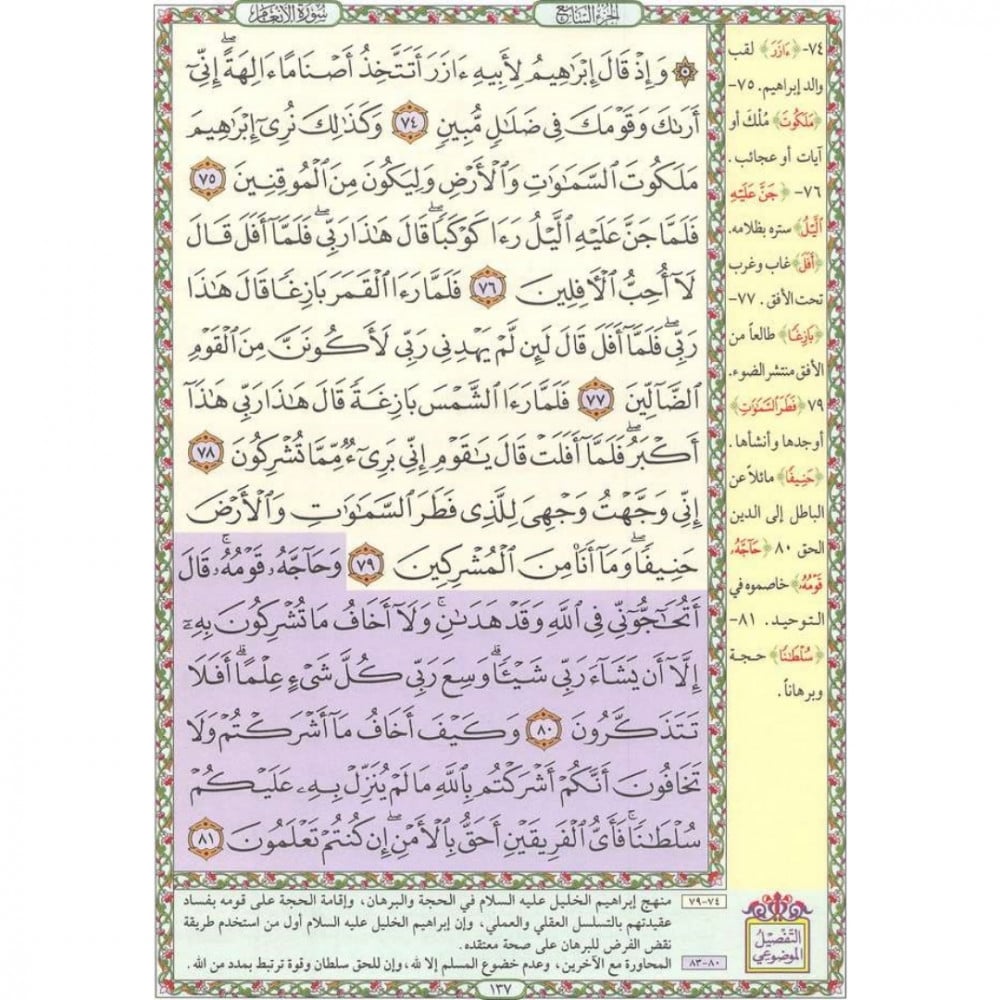 سورة الأنعام
الجزء السابع
۞ وَإِذْ قَالَ إِبْرَٰهِيمُ لِأَبِيهِ ءَازَرَ أَتَتَّخِذُ أَصْنَامًا ءَالِهَةً ۖ إِنِّىٓ
أَرَىٰكَ وَقَوْمَكَ فِى ضَلَٰلٍ مُّبِينٍ ٧٤ وَكَذَٰلِكَ نُرِىٓ إِبْرَٰهِيمَ
مَلَكُوتَ ٱلسَّمَٰوَٰتِ وَٱلْأَرْضِ وَلِيَكُونَ مِنَ ٱلْمُوقِنِينَ ٧٥
فَلَمَّا جَنَّ عَلَيْهِ ٱلَّيْلُ رَءَا كَوْكَبًا ۖ قَالَ هَٰذَا رَبِّى ۖ فَلَمَّآ أَفَلَ قَالَ
لَآ أُحِبُّ ٱلْءَافِلِينَ ٧٦ فَلَمَّا رَءَا ٱلْقَمَرَ بَازِغًا قَالَ هَٰذَا
رَبِّى ۖ فَلَمَّآ أَفَلَ قَالَ لَئِن لَّمْ يَهْدِنِى رَبِّى لَأَكُونَنَّ مِنَ ٱلْقَوْمِ
ٱلضَّآلِّينَ ٧٧ فَلَمَّا رَءَا ٱلشَّمْسَ بَازِغَةً قَالَ هَٰذَا رَبِّى هَٰذَآ
أَكْبَرُ ۖ فَلَمَّآ أَفَلَتْ قَالَ يَٰقَوْمِ إِنِّى بَرِىٓءٌ مِّمَّا تُشْرِكُونَ ٧٨
إِنِّى وَجَّهْتُ وَجْهِىَ لِلَّذِى فَطَرَ ٱلسَّمَٰوَٰتِ وَٱلْأَرْضَ
حَنِيفًا ۖ وَمَآ أَنَا۠ مِنَ ٱلْمُشْرِكِينَ ٧٩ وَحَآجَّهُۥ قَوْمُهُۥ ۚ قَالَ
أَتُحَٰٓجُّوٓنِّى فِى ٱللَّهِ وَقَدْ هَدَىٰنِ ۚ وَلَآ أَخَافُ مَا تُشْرِكُونَ بِهِۦٓ
إِلَّآ أَن يَشَآءَ رَبِّى شَيْـًٔا ۗ وَسِعَ رَبِّى كُلَّ شَىْءٍ عِلْمًا ۗ أَفَلَا
تَتَذَكَّرُونَ ٨٠ وَكَيْفَ أَخَافُ مَآ أَشْرَكْتُمْ وَلَا
تَخَافُونَ أَنَّكُمْ أَشْرَكْتُم بِٱللَّهِ مَا لَمْ يُنَزِّلْ بِهِۦ عَلَيْكُمْ
سُلْطَٰنًا ۚ فَأَىُّ ٱلْفَرِيقَيْنِ أَحَقُّ بِٱلْأَمْنِ ۖ إِن كُنتُمْ تَعْلَمُونَ ٨١
٧٤- ﴿ءَازَرَ﴾ لقب
والد إبراهيم. ٧٥-
﴿مَلَكُوتَ﴾ مُلْكَ أو
آيات أو عجائب.
٧٦- ﴿جَنَّ عَلَيْهِ
ٱلَّيْلُ﴾ ستره بظلامه.
﴿أَفَلَ﴾ غاب وغرب
تحت الأفق. ٧٧-
﴿بَازِغًا﴾ طالعاً من
الأفق منتشر الضوء.
٧٩ ﴿فَطَرَ ٱلسَّمَٰوَٰتِ﴾
أوجدها وأنشأها.
﴿حَنِيفًا﴾ مائلاً عن
الباطل إلى الدين
الحق ٨٠ ﴿حَآجَّهُۥ
قَوْمُهُۥ﴾ خاصموه في
التوحيد. ٨١-
﴿سُلْطَٰنًا﴾ حجة
وبرهاناً.
التَّفْصِيلُ
الموضوعي
٧٤-٧٩ منهج إبراهيم الخليل عليه السلام في الحجة والبرهان، وإقامة الحجة على قومه بفساد
عقيدتهم بالتسلسل العقلي والعملي، وإن إبراهيم الخليل عليه السلام أول من استخدم طريقة
نقض الفرض للبرهان على صحة معتقده.
٨٠-٨٣ المحاورة مع الآخرين، وعدم خضوع المسلم إلا لله، وإن للحق سلطان وقوة ترتبط بمدد من الله.
١٣٧